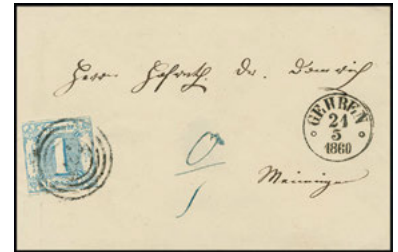 Herrn Hofrath. Dr. Domrich
GEHREN
21
5
1860
1
Meiningen